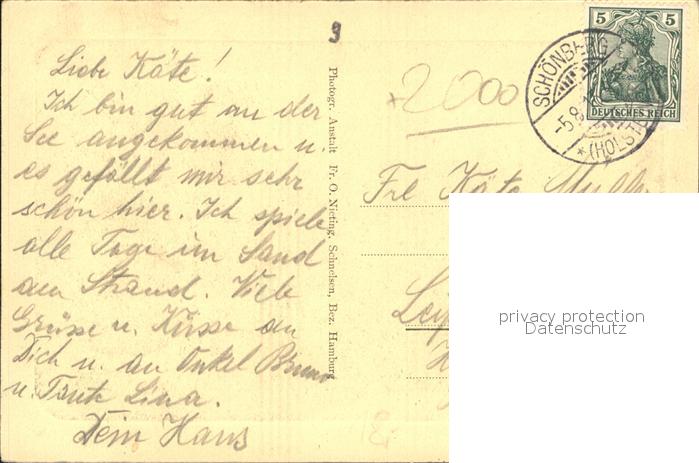 9
Liebe Käte!
Ich bin gut an der
See angekommen u.
es gefällt mir sehr
schön hier. Ich spiele
alle Tage im Sand
am Strand. Viele
Grüsse u. Küsse an
Dich u. an Onkel Bruno
u. Tante Lina.
Dein Hans
Photogr. Anstalt Fr. O. Nieting, Schnelsen, Bez. Hamburg
2000
5 5
DEUTSCHES REICH
SCHÖNBERG
-5.8.
* (HOLSTEIN)
Frl Käte
privacy protection
Datenschutz